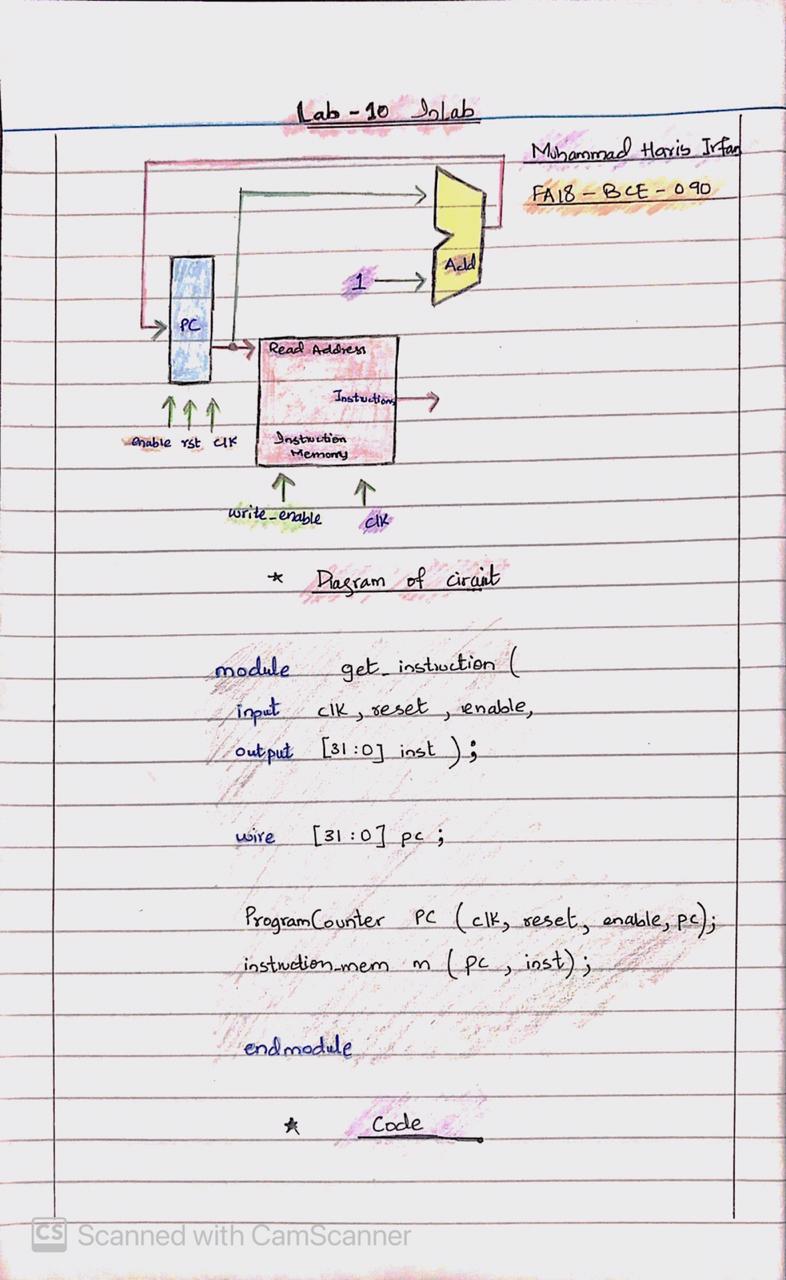 Lab - 10 InLab
Muhammad Haris Irfan
FA18 - BCE - 090
Add
1
PC
Read Address
Instruction
Instruction
Memory
enable rst clk
write_enable
clk
* Diagram of circuit
module get_instruction (
input clk, reset, enable,
output [31:0] inst );
wire [31:0] pc ;
ProgramCounter PC (clk, reset, enable, pc);
instruction_mem m ( pc , inst);
endmodule
* Code
CS Scanned with CamScanner